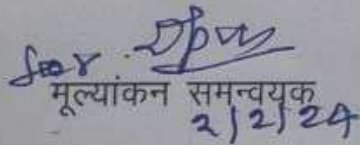 for
मूल्यांकन समन्वयक
2/2/24